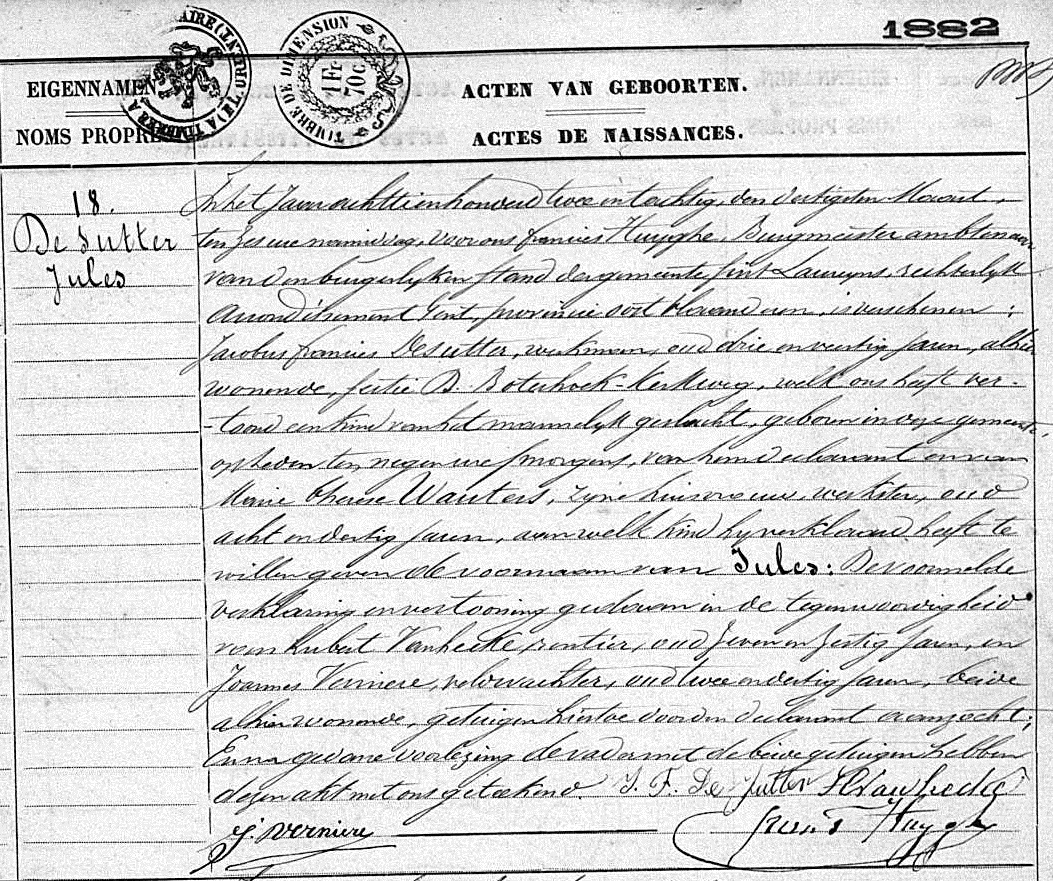 1882
EIGENNAMEN
NOMS PROPRES
TIMBRE DE DIMENSION
1 Fr
70 c.
ACTEN VAN GEBOORTEN.
ACTES DE NAISSANCES.
18.
De Sutter
Jules
In het Jaar achttienhonderd twee en tachtig, den dertigsten Maart,
ten zes ure namiddag, voor ons francies Huyghe, Burgmeister ambtenaar
van den burgerlyken stand der gemeente sint Laureyns, rechterlyk
Arrondissement Gent, provincie oost vlaanderen, is verschenen:
Jacobus francies De Sutter, werkman, oud drie en veertig jaren, alhier
wonende, sectie B. Boterhoek-Kerkweg, welk ons heeft ver-
-toond een kind van het mannelyk geslacht, geboren in deze gemeente,
op heden ten negen ure smorgens, van hem declarant en van
Marie Therese Wauters, zyne huisvrouw, werkster, oud
acht en dertig jaren, aan welk kind hy verklaard heeft te
willen geven de voornaam van Jules: De voormelde
verklaring en vertooning gedaan in de tegenwoordigheid
van Hubert Vanhecke, rentier, oud zeven en zestig jaren, en
Joannes Verniere, veldwachter, oud twee en dertig jaren, beide
alhier wonende, getuigen hiertoe door den declarant aanzocht;
En na gedane voorlezing de vader met de beide getuigen hebben
dezen akt met ons geteekend. J. F. De Sutter H Vanhecke
J. Verniere francies Huyghe